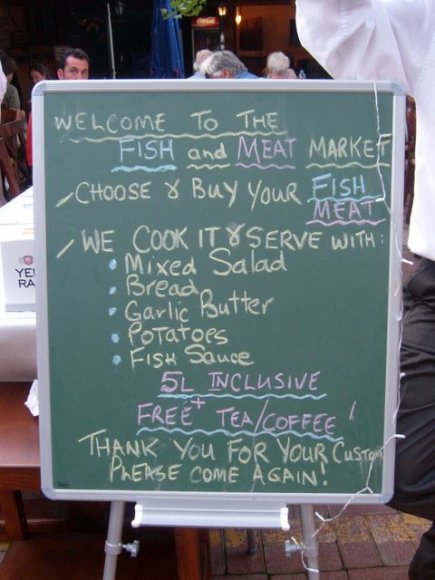 WELCOME TO THE
FISH and MEAT MARKET
CHOOSE & BUY YOUR FISH
MEAT
WE COOK IT & SERVE WITH:
Mixed Salad
Bread
Garlic Butter
Potatoes
Fish Sauce
5L INCLUSIVE
FREE + TEA/COFFEE !
THANK YOU FOR YOUR CUSTOM
PLEASE COME AGAIN!
Coca-Cola
YE
RA